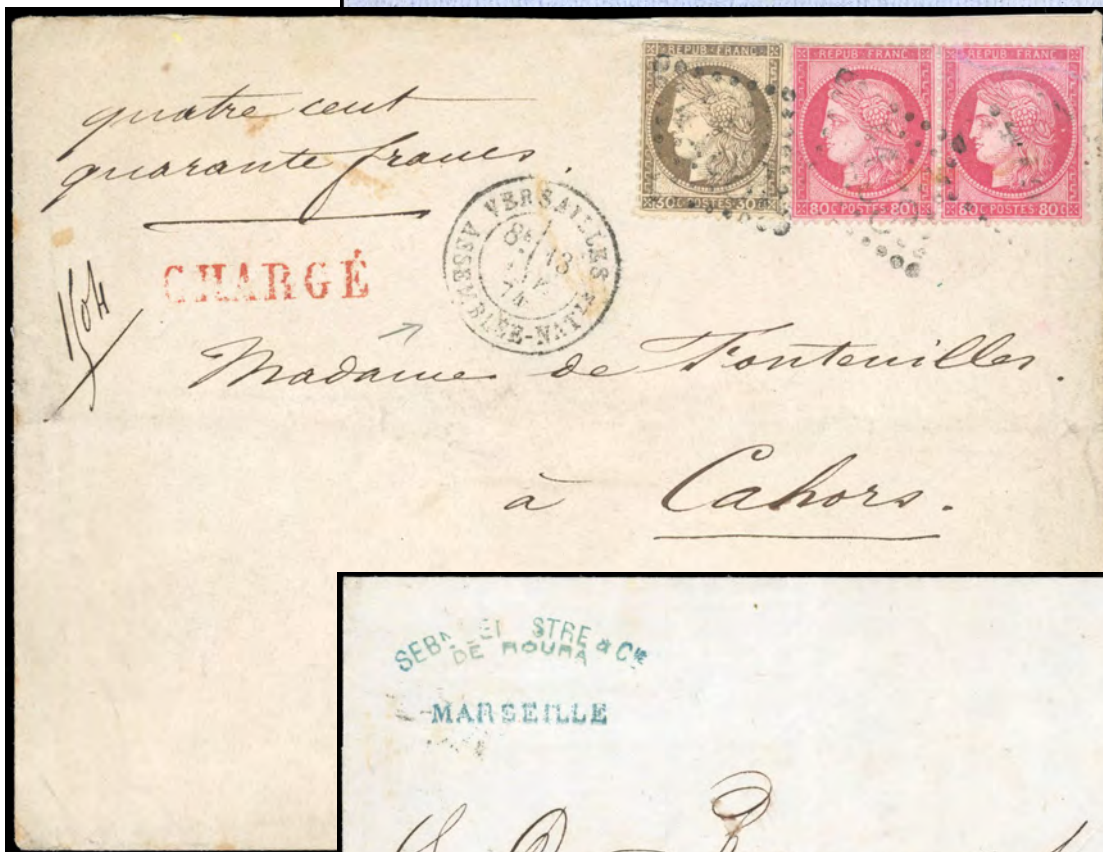 quatre cent
quarante francs.
REPUB FRANC
30C POSTES 30C
REPUB FRANC
80C POSTES 80C
REPUB FRANC
80C POSTES 80C
VERSAILLES
ASSEMBLÉE-NATLE
8E
13
74
CHARGÉ
1504
Madame de Fontenilles.
à Cahors.
STRE & CIE
DE
MARSEILLE